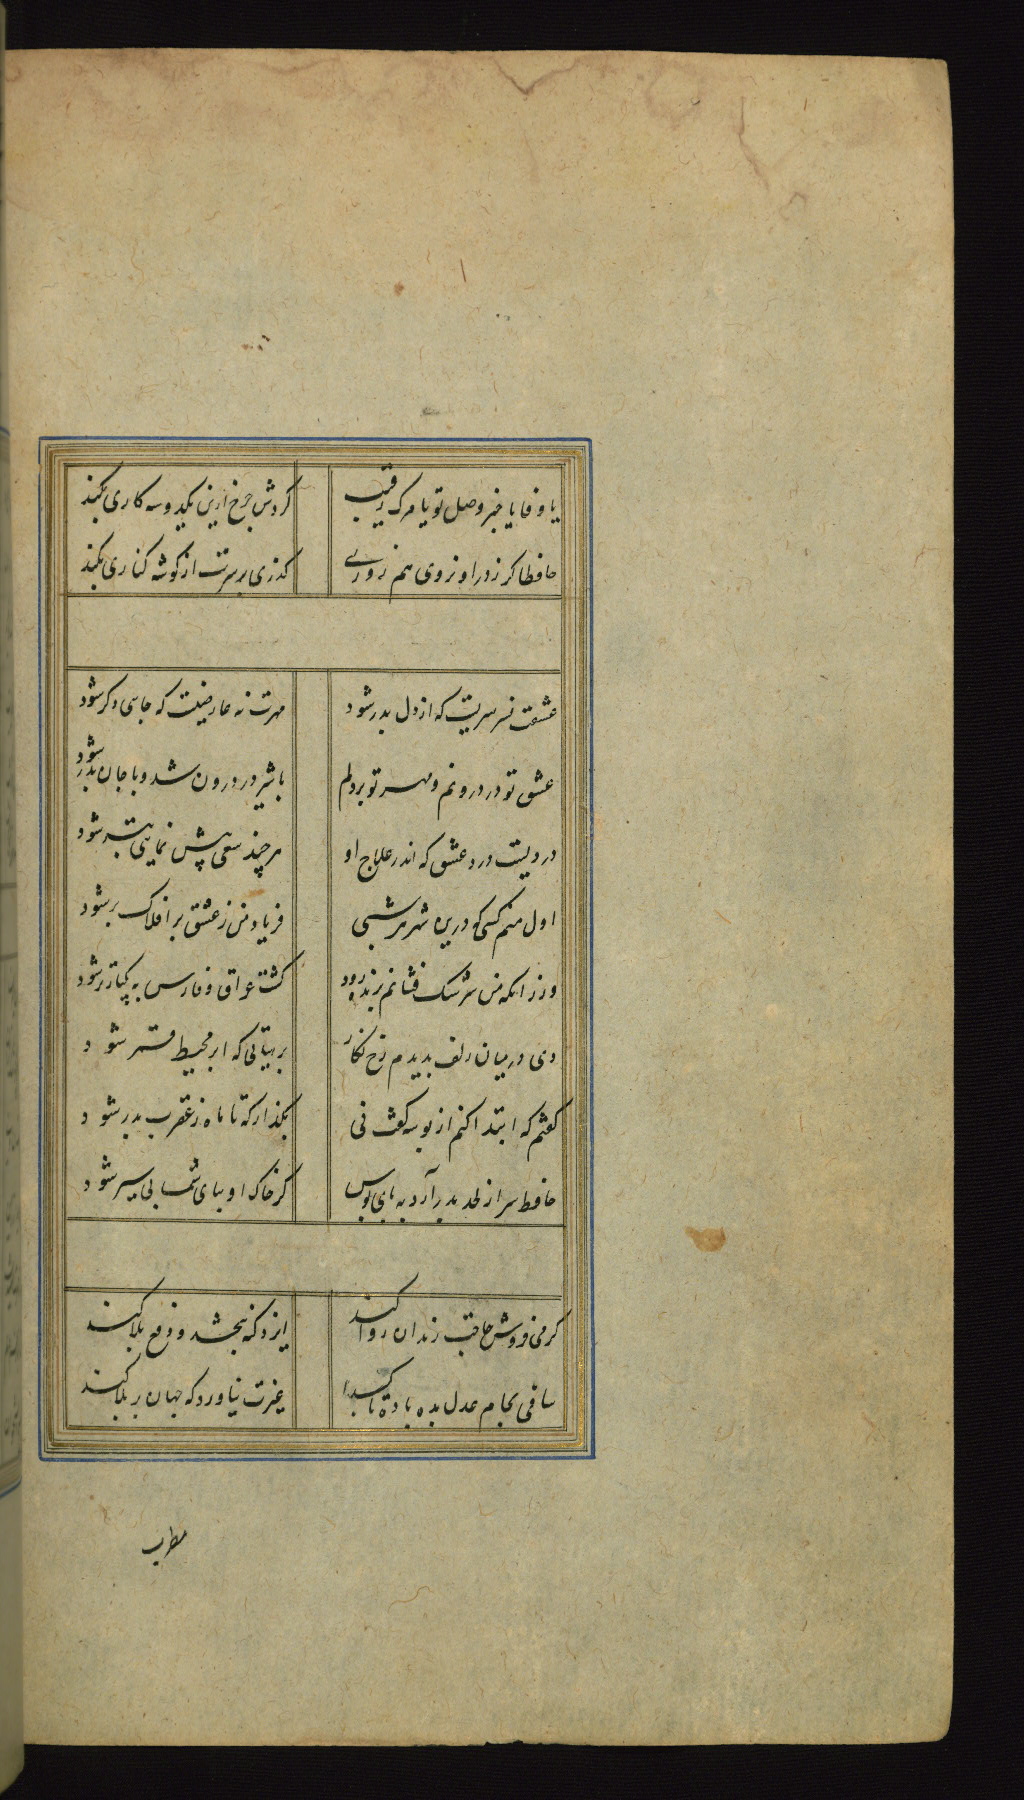 یا وفا یا خبر وصل تو یا مرک رقیب کردش چرخ ازین یکدوسه کاری بکند
حافظا کر نروی از در او هم روزی کذری بر سرت از کوشه کناری بکند
عشقت نه سرسریست که از دل بدر شود مهرت نه عارضیست که جای دکر شود
عشق تو در درونم و مهر تو بر دلم با شیر در درون شد و با جان بدر شود
دردیست درد عشق که اندر علاج او هر چند سعی پیش نمایی بتر شود
اول منم کسی که درین شهر هر شبی فریاد من ز عشق بر افلاک بر شود
ور زانکه من سرشک فشانم بزنده رود کشت عراق و فارس به یکبار تر شود
دی در میان زلف بدیدم رخ نکار بر هیاتی که ابر محیط قمر شود
کفتم که ابتدا کنم از بوسه کفت نی بکذار که تا ماه ز عقرب بدر شود
حافظ سر از لحد بدر آرد به پای بوس کر خاک او بپای شما پی سپر شود
کر می فروش حاجت رندان روا کند ایزد کنه ببخشد و دفع بلا کند
ساقی بجام عدل بده باده تا کدا غیرت نیاورد که جهان پر بلا کند
مطرب